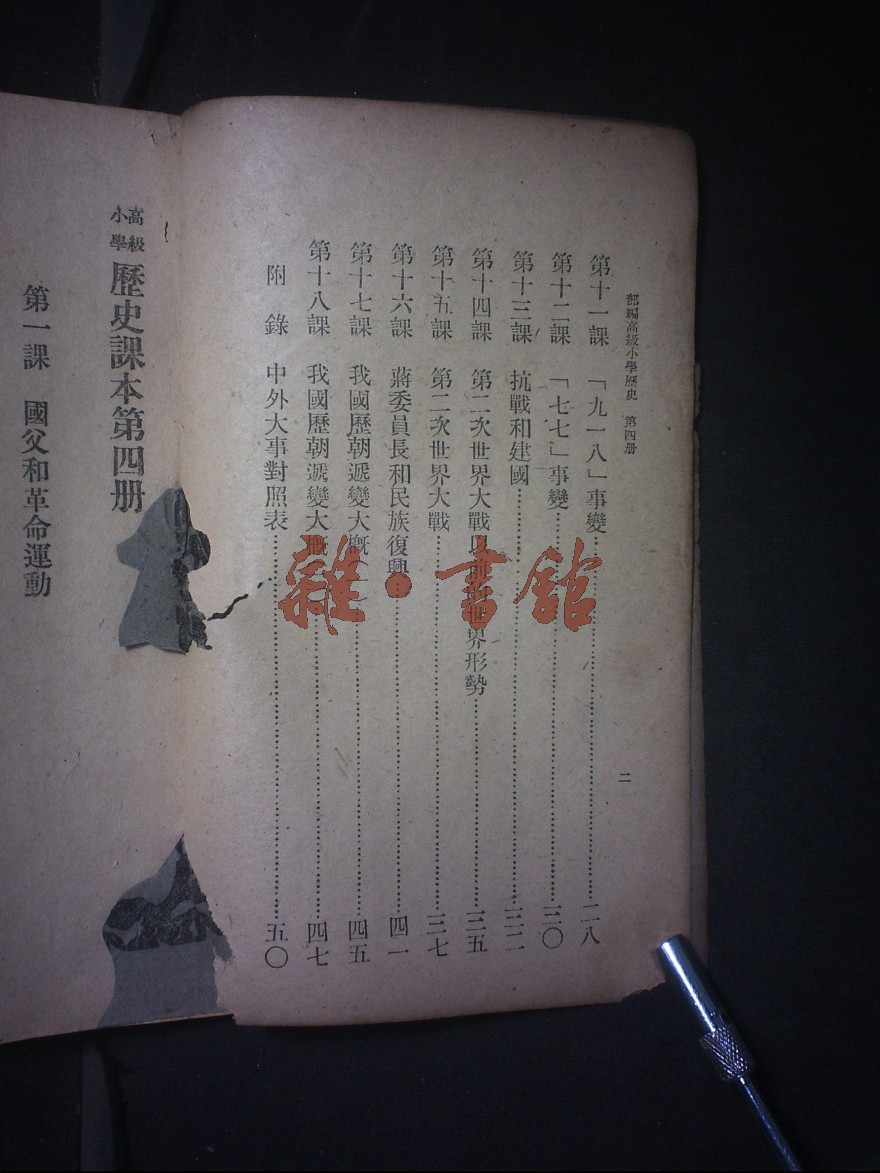 部編高級小學歷史　第四册
二
第十一課　「九一八」事變……二八
第十二課　「七七」事變……三〇
第十三課　抗戰和建國……三二
第十四課　第二次世界大戰以前的世界形勢……三五
第十五課　第二次世界大戰……三七
第十六課　蔣委員長和民族復興……四一
第十七課　我國歷朝遞變大概(一)……四五
第十八課　我國歷朝遞變大概……四七
附　錄　中外大事對照表……五〇
高級小學歷史課本第四册
第一課　國父和革命運動
雜·書館